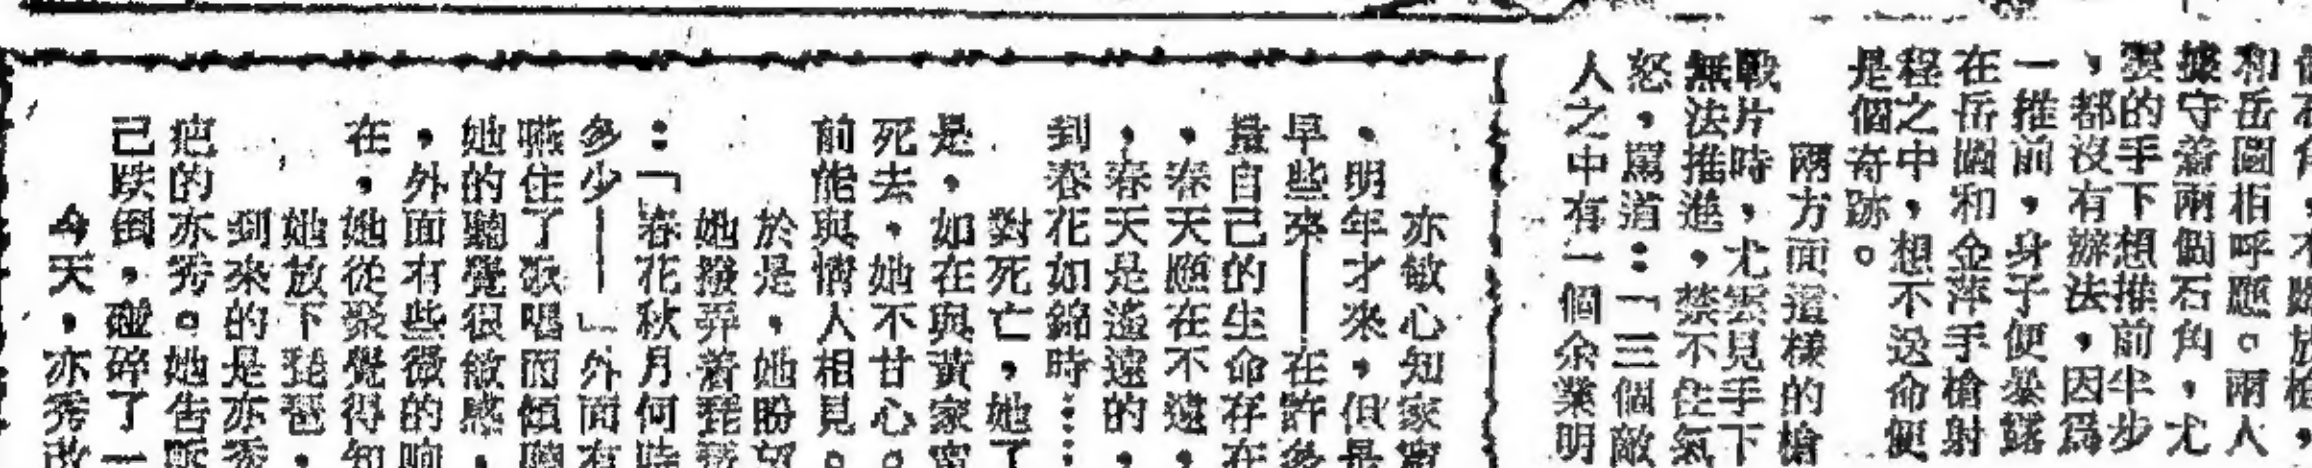 和岳圖相呼應。兩人
據守着兩個石角，尤
雲的手下想推前半步
，都沒有辦法，因爲
一推前，身子便暴露
在岳圖和金萍手槍射
程之中，想不送命便
是個奇跡。
兩方面這樣的槍
戰片時，尤雲見手下
無法推進，禁不住氣
怒，罵道：「三個敵
人之中有一個余業明
亦敏心知家甯
，明年才來，但是
早些來——在許多
量自己的生命存在
，春天應在不遠，
，春天是遙遠的，
到春花如錦時⋯⋯
對死亡，她了
是，如在與黃家甯
死去，她不甘心。
前能與情人相見。
於是，她盼望
她撥弄着琵琶
：「春花秋月何時
多少——」外面有
嚥住了歌唱而傾聽
她的聽覺很敏感，
，外面有些微的响
在，她從聚覺得知
她放下琵琶，
到來的是亦秀
疤的亦秀。她告訴
己跌倒，碰碎了一
今天，亦秀改